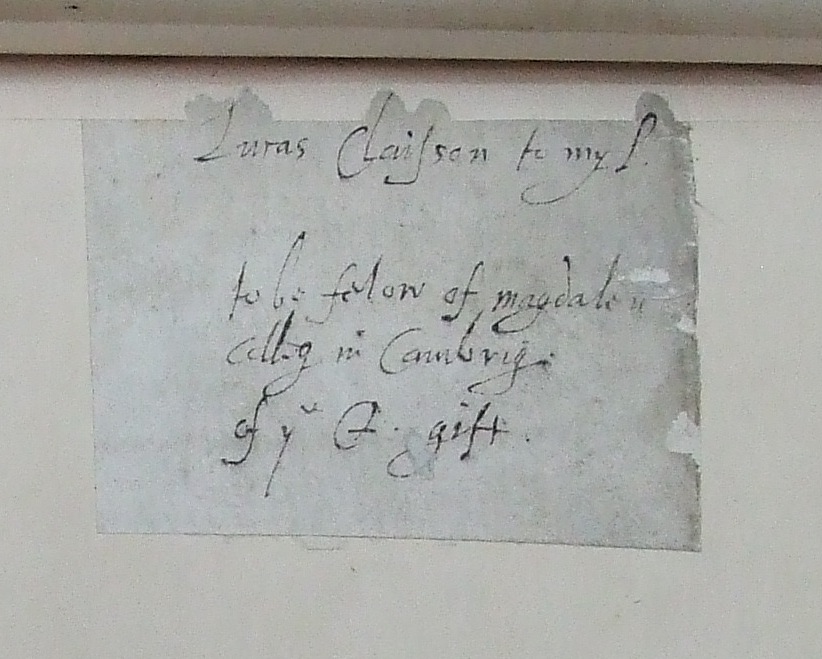 Lucas Claisson to my L.
to be felow of magdalen
colleg in Cambrig:
of yᵉ Q. gift.